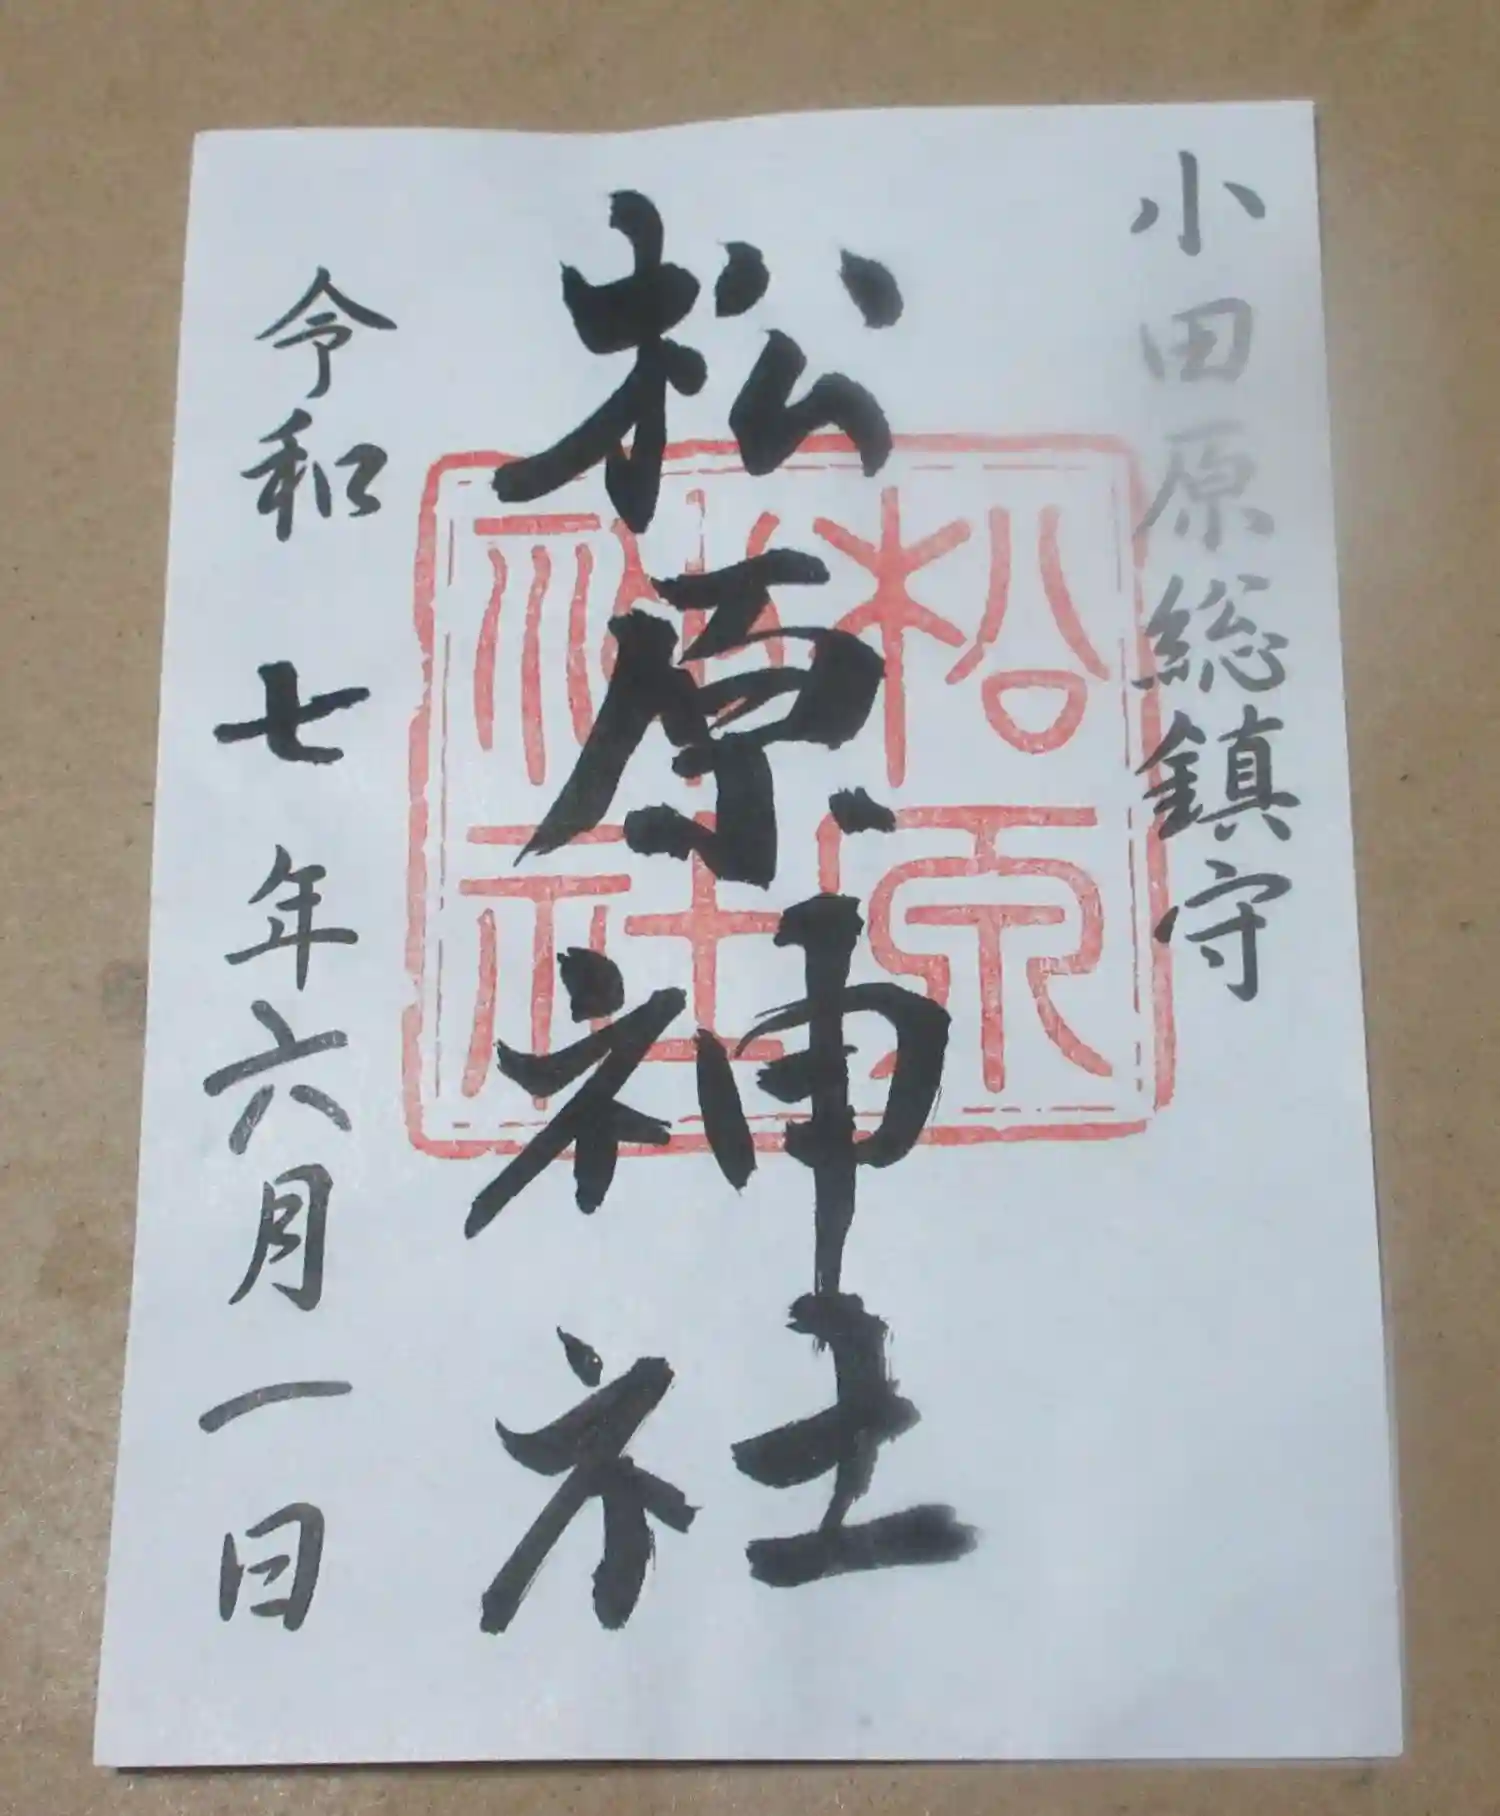 小田原総鎮守
松原神社
松原神社
令和 七年六月一日